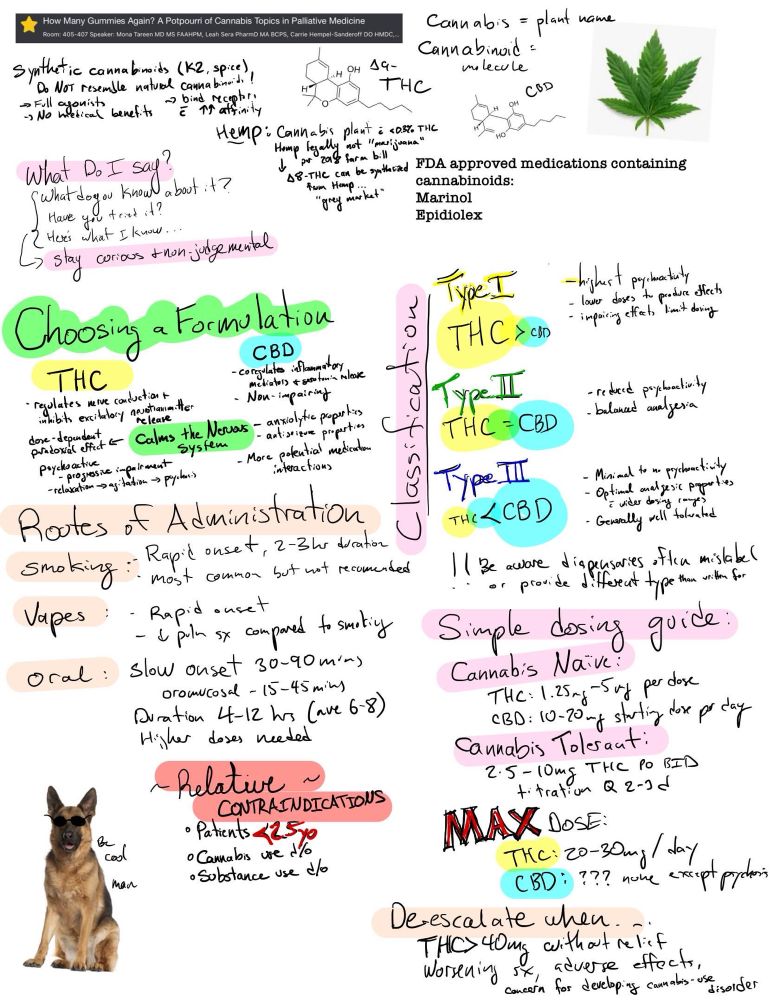 How Many Gummies Again? A Potpourri of Cannabis Topics in Palliative Medicine
Room: 405-407 Speaker: Mona Tareen MD MS FAAHPM, Leah Sera PharmD MA BCPS, Carrie Hempel-Sanderoff DO HMDC,...
Cannabis = plant name
Cannabinoid =
molecule
Synthetic cannabinoids (K2, spice)
Do Not resemble natural cannabinoids!
→ Full agonists
→ No medical benefits
→ bind receptors
c̄ ↑↑ affinity
H
OH
H
O
Δ9-
THC
CBD
OH
H
H
HO
Hemp: Cannabis plant c̄ <0.3% THC
Hemp legally not "marijuana"
↓ per 2018 farm bill
Δ8-THC can be synthesized
from Hemp...
"grey market"
FDA approved medications containing
cannabinoids:
Marinol
Epidiolex
What Do I say?
What do you know about it?
Have you tried it?
Here's what I know...
stay curious + non-judgemental
Choosing a Formulation
THC
- regulates nerve conduction +
inhibits excitatory neurotransmitter
release
dose-dependent
paradoxical effect ←
psychoactive
- progressive impairment
- relaxation → agitation → psychosis
Calms the Nervous
System
CBD
- coregulates inflammatory
mediators + serotonin release
- Non-impairing
- anxiolytic properties
- antiseizure properties
- More potential medication
interactions
Classification
Type I
THC > CBD
- highest psychoactivity
- lower doses to produce effects
- impairing effects limit dosing
Type II
THC = CBD
- reduced psychoactivity
- balanced analgesia
Type III
THC < CBD
- Minimal to no psychoactivity
- Optimal analgesic properties
c̄ wider dosing ranges
- Generally well tolerated
!! Be aware dispensaries often mislabel
or provide different type than written for
Rootes of Administration
smoking: - Rapid onset, 2-3hr duration
- most common but not recomended
Vapes: - Rapid onset
- ↓ pulm sx compared to smoking
oral: Slow onset 30-90 mins
oromucosal - 15-45 mins
Duration 4-12 hrs (ave 6-8)
Higher doses needed
Simple dosing guide:
Cannabis Naïve:
THC: 1.25mg-5mg per dose
CBD: 10-20mg starting dose per day
Cannabis Tolerant:
2.5-10mg THC PO BID
titration Q 2-3d
MAX DOSE:
THC: 20-30mg / day
CBD: ??? none except psychosis
~ Relative ~
CONTRAINDICATIONS
• Patients <25yo
• Cannabis use d/o
• Substance use d/o
Be
cool
man
De-escalate when...
THC > 40mg without relief
Worsening sx, adverse effects,
concern for developing cannabis-use
disorder